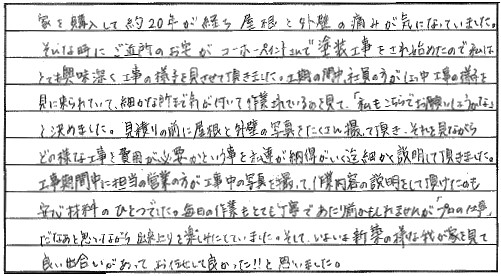 家を購入して約20年が経ち屋根と外壁の痛みが気になっていました。
そんな時にご近所のお宅がユーホーペイントさんで塗装工事をされ始めたので私は
とても興味深く工事の様子を見させて頂きました。工期の間中、社員の方が工事の様子を
見に来られていて、細かな所まで気が付いて作業されているのを見て、「私もこちらでお願いしようかな」
と決めました。見積りの前に屋根と外壁の写真をたくさん撮って頂き、それを見ながら
どの様な工事と費用が必要かという事を私達が納得がいく迄細かく説明して頂きました。
工事期間中に担当の営業の方が工事中の写真を撮って、作業内容の説明をして頂けたのも
安心材料のひとつでした。毎日の作業もとても丁寧であたり前かもしれませんが「プロの仕事」
だなあと思いながら出来上りを楽しみにしていました。そして、いよいよ新築の様な我が家を見て
良い出合いがあって、お任せして良かった!!と思いました。